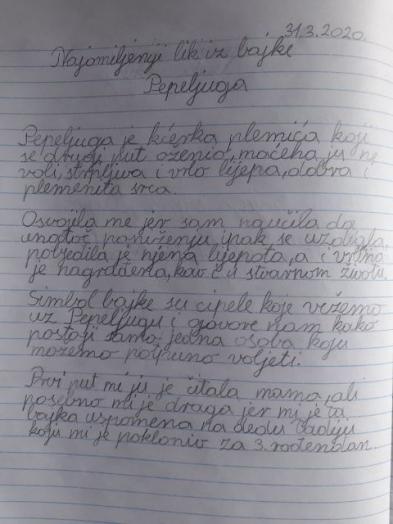 31.3.2020.
Najomiljeniji lik iz bajke
Pepeljuga
Pepeljuga je kćerka plemića koji
se drugi put oženio, maćeha ju ne
voli, strpljiva i vrlo lijepa, dobra i
plemenita srca.
Osvojila me jer sam naučila da
unatoč poniženju ipak se uzdigla,
pobjedila je njena ljepota, a i vrlina
je nagrađena, kao i u stvarnom životu.
Simbol bajke su cipele koje vežemo
uz Pepeljugu i govore nam kako
postoji samo jedna osoba koju
možemo potpuno voljeti.
Prvi put mi ju je čitala mama, ali
posebno mi je draga jer mi je ta
bajka uspomena na dedu
koju mi je poklonio za 3. rođendan.